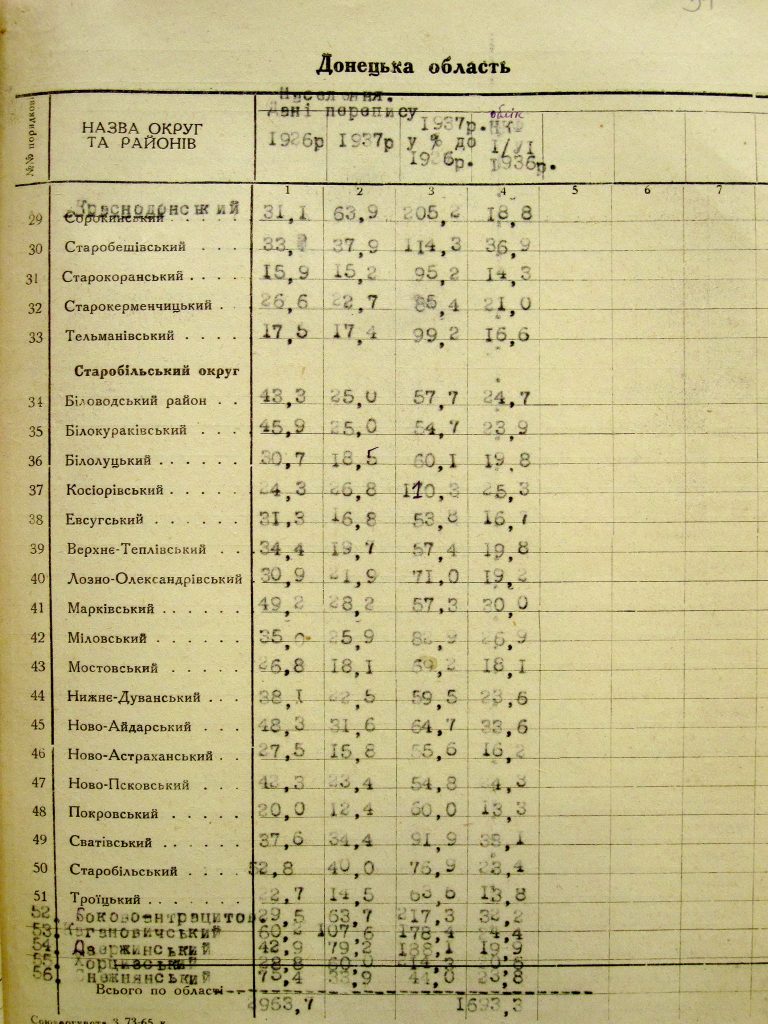 Донецька область
Населення.
Дані перепису
НАЗВА ОКРУГ ТА РАЙОНІВ
1926р 1937р 1937р. у % до 1926р. НКО 1/VI 1936р.
1 2 3 4 5 6 7
29 Сорокинський Краснодонський 31,1 63,9 205,2 18,8
30 Старобешівський . . . 37,9 114,3 36,9
31 Старокоранський . . . . 15,9 15,2 95,2 14,3
32 Старокерменчицький . 26,6 22,7 85,4 21,0
33 Тельманівський . . . . 17,5 17,4 99,2 16,6
Старобільський округ
34 Біловодський район . . 43,3 25,0 57,7 24,7
35 Білокураківський . . . 45,9 25,0 54,7 23,9
36 Білолуцький . . . . . . 30,7 18,5 60,1 19,8
37 Косіорівський . . . . . 24,3 26,8 110,3 25,3
38 Евсугський . . . . . . 31,3 16,8 53,8 16,7
39 Верхнє-Теплівський . . 34,4 19,7 57,4 19,8
40 Лозно-Олександрівський 30,9 21,9 71,0 19,2
41 Марківський . . . . . . 49,2 28,2 57,3 30,0
42 Міловський . . . . . . 25,9 26,9
43 Мостовський . . . . . 26,8 18,1 18,1
44 Нижнє-Дуванський . . . 38,1 22,5 59,5 23,6
45 Ново-Айдарський . . . 48,3 31,6 64,7 33,6
46 Ново-Астраханський . . 27,5 15,8 55,6 16,2
47 Ново-Псковський . . . 23,4 54,8 24,3
48 Покровський . . . . . 20,0 12,4 60,0 13,3
49 Сватівський . . . . . . 37,6 34,4 91,9 38,1
50 Старобільський . . . . 52,8 40,0 75,9 23,4
51 Троїцький . . . . . . . 22,7 14,5 13,8
52. Боковоентрацитов. 29,5 63,7 217,3
53 Кагановичський 107,6 178,4
54. Дзержинський 42,9 79,2 188,1 19,9
55 Хорцизський 28,8 60,0
56. Снежнянський 75,4 33,9 44,0 23,8
Всього по області 2963,7 1693,3